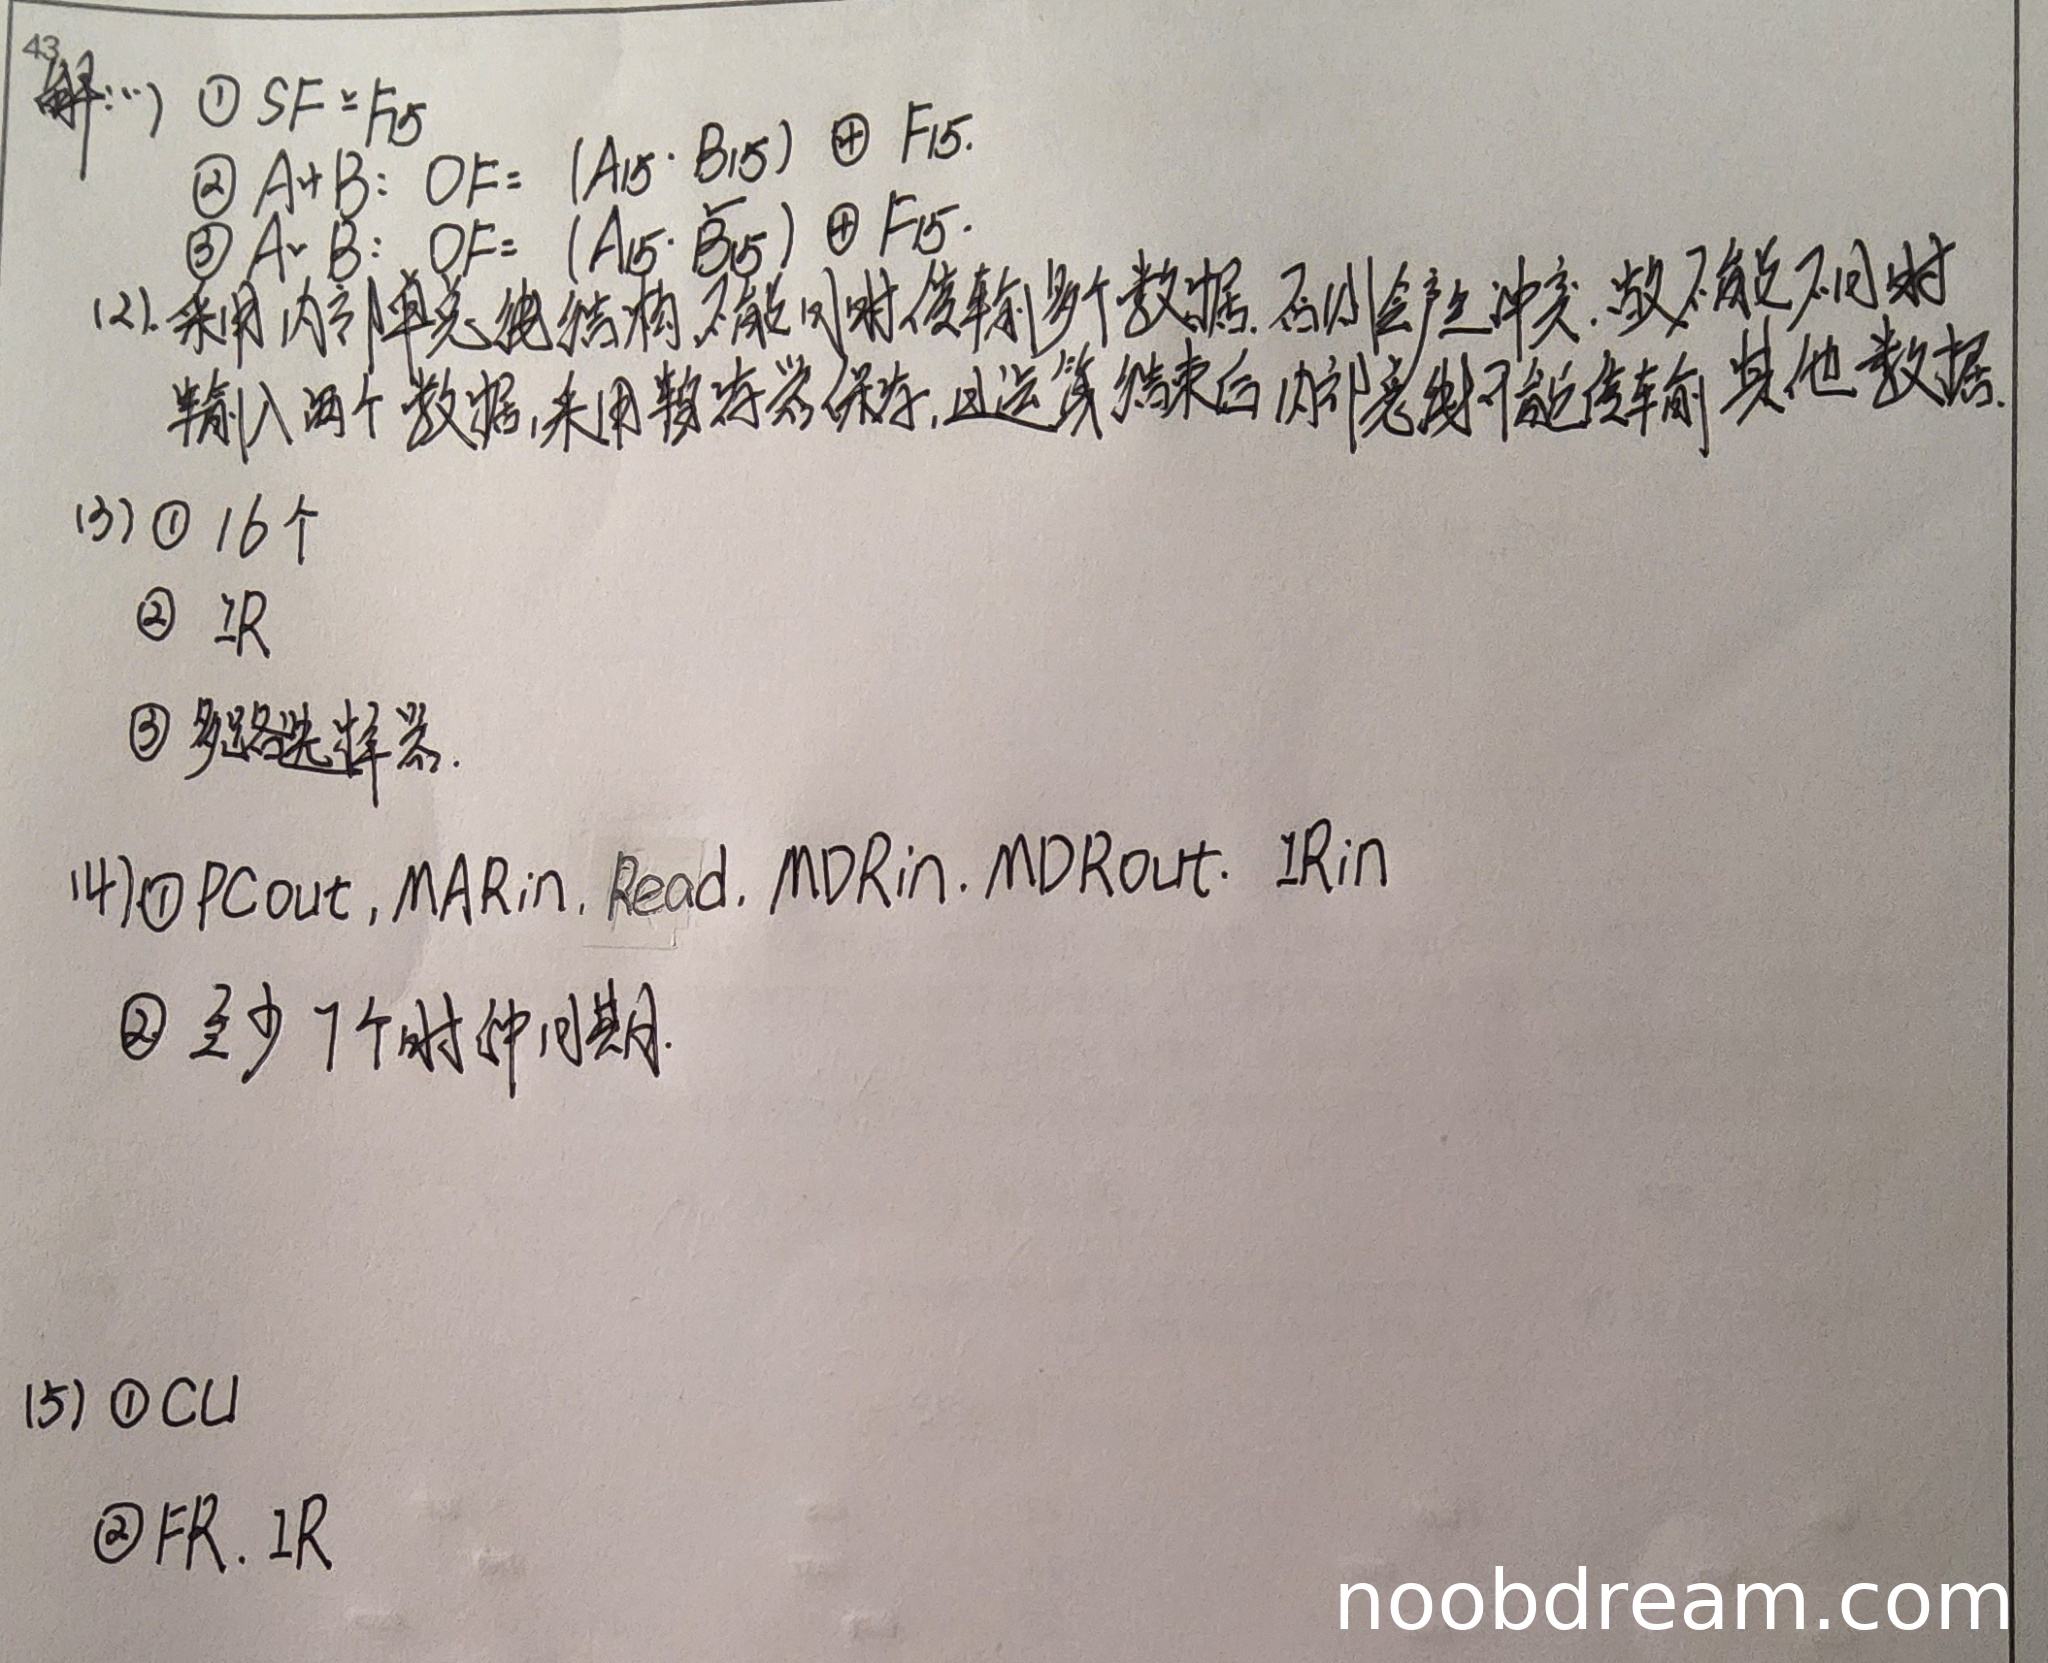 43
解:(1) ① SF = F15
② A+B: OF= (A15·B15) ⊕ F15.
③ A-B: OF= (A15·B̅15) ⊕ F15.
(2). 采用内部单总线结构,不能同时传输多个数据.否则会产生冲突.故不能不同时
输入两个数据,采用暂存器保存,且运算结束后内部总线不能传输其他数据.
(3) ① 16个
② IR
③ 多路选择器.
(4) ① PCout, MARin, Read, MDRin. MDRout. IRin
② 至少7个时钟周期.
(5) ① CU
② FR. IR
noobdream.com